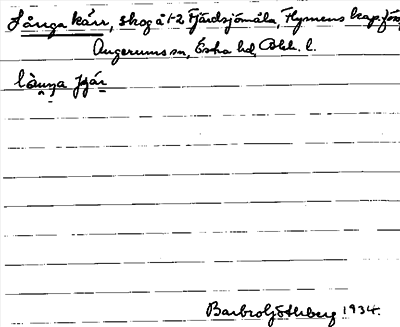 Långa kärr, skog å 1-2 Fjärdsjömåla, Flymens kapförs
Augerums sn, Östra hd, Blek. l.
Barbro Göthberg 1934.